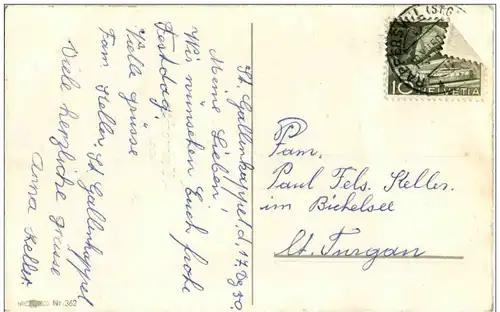 St. Gallenkappel, d. 17. Dez 50.
Meine Lieben!
Wir wünschen Euch frohe
Festdag.
Viele grüsse
Fam. Keller. St Gallenkappel
Viele herzliche grüsse
Anna Keller.
Nr. 362
Fam.
Paul Fels. Keller.
im Bichelsee
Ct. Turgau
RAPPERSWIL (ST.G
10 HELVETIA